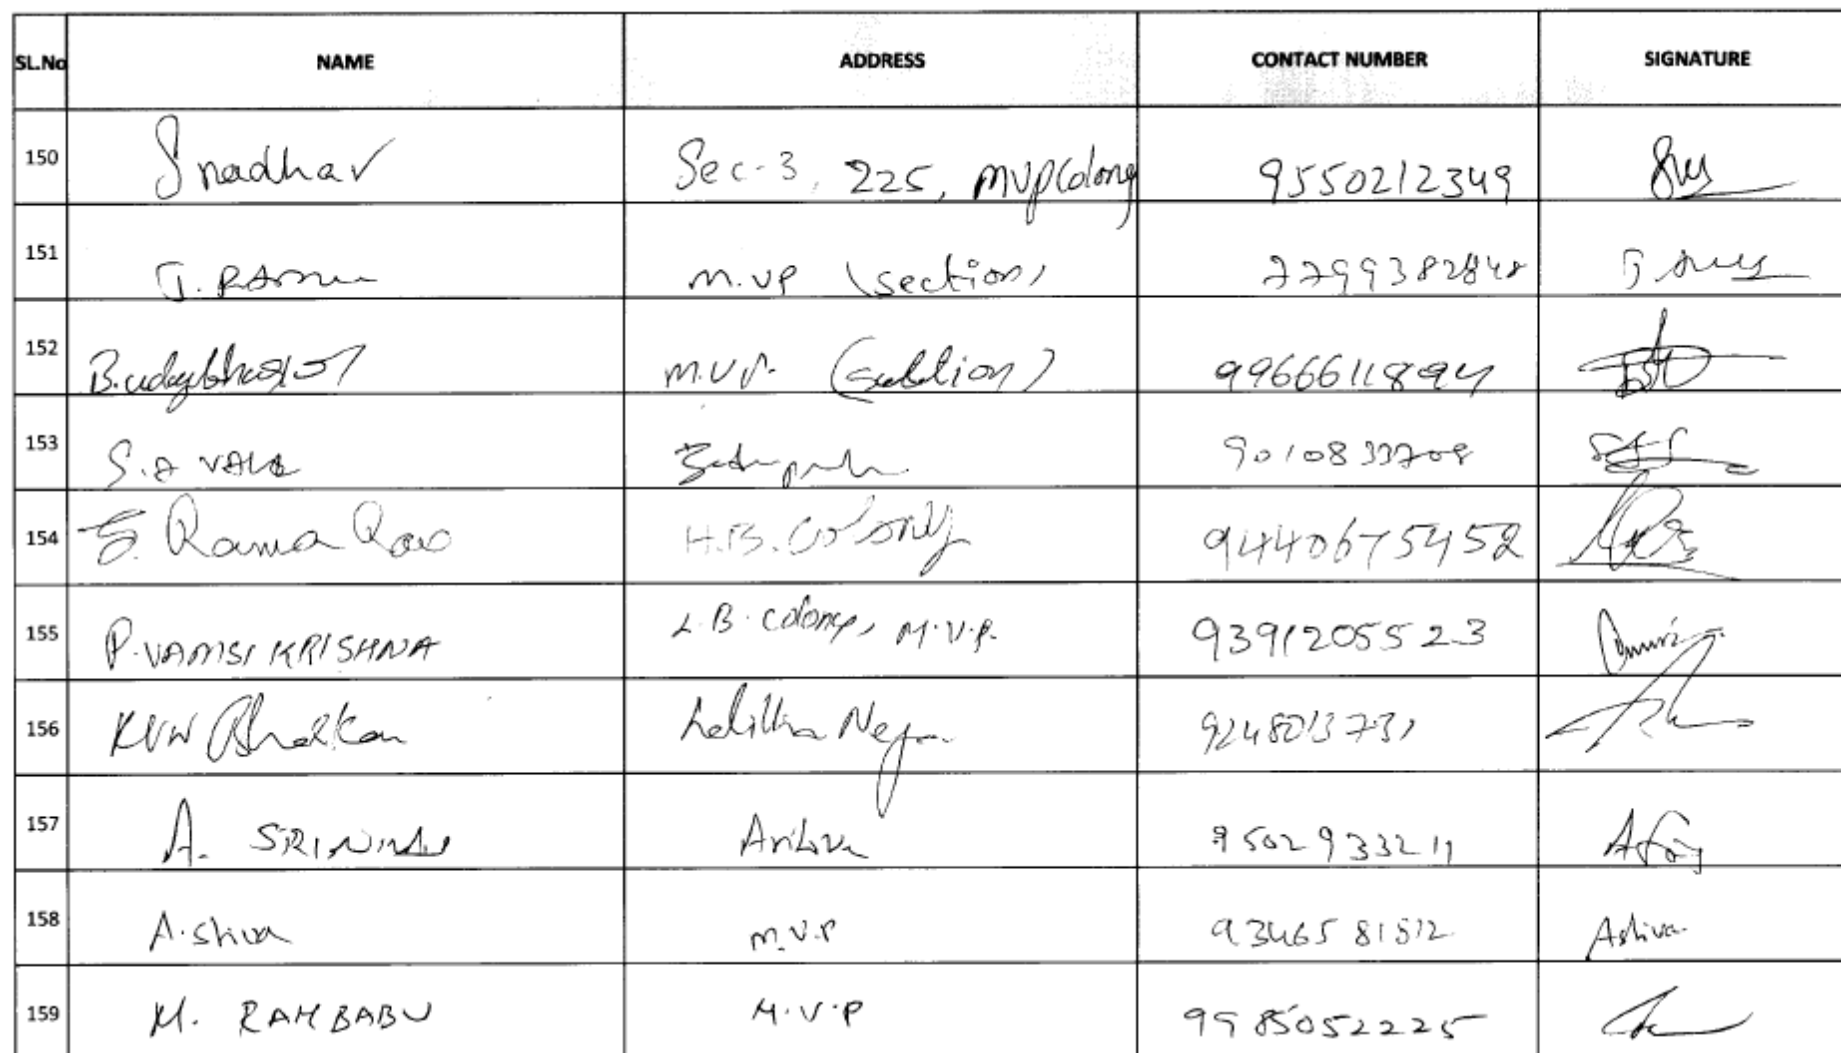 SL.No NAME ADDRESS CONTACT NUMBER SIGNATURE
150 Snadhav Sec-3, 225, MVP Colony 9550212349
151 J. RAmu M.VP (section) 7799382848
152 M.V.P. 9966611894
153 S.A VALE 9010833708
154 Rama Rao H.B. Colony 9440675452
155 P. VAMSI KRISHNA L.B. Colony, M.V.P. 9391205523
156 KVN Bhaskar Lalitha Nagar 9248013731
157 A. Arilova 9502933211
158 A. Shiva M.V.P 9346581812 Ashiva
159 M. RAMBABU M.V.P 9985052225